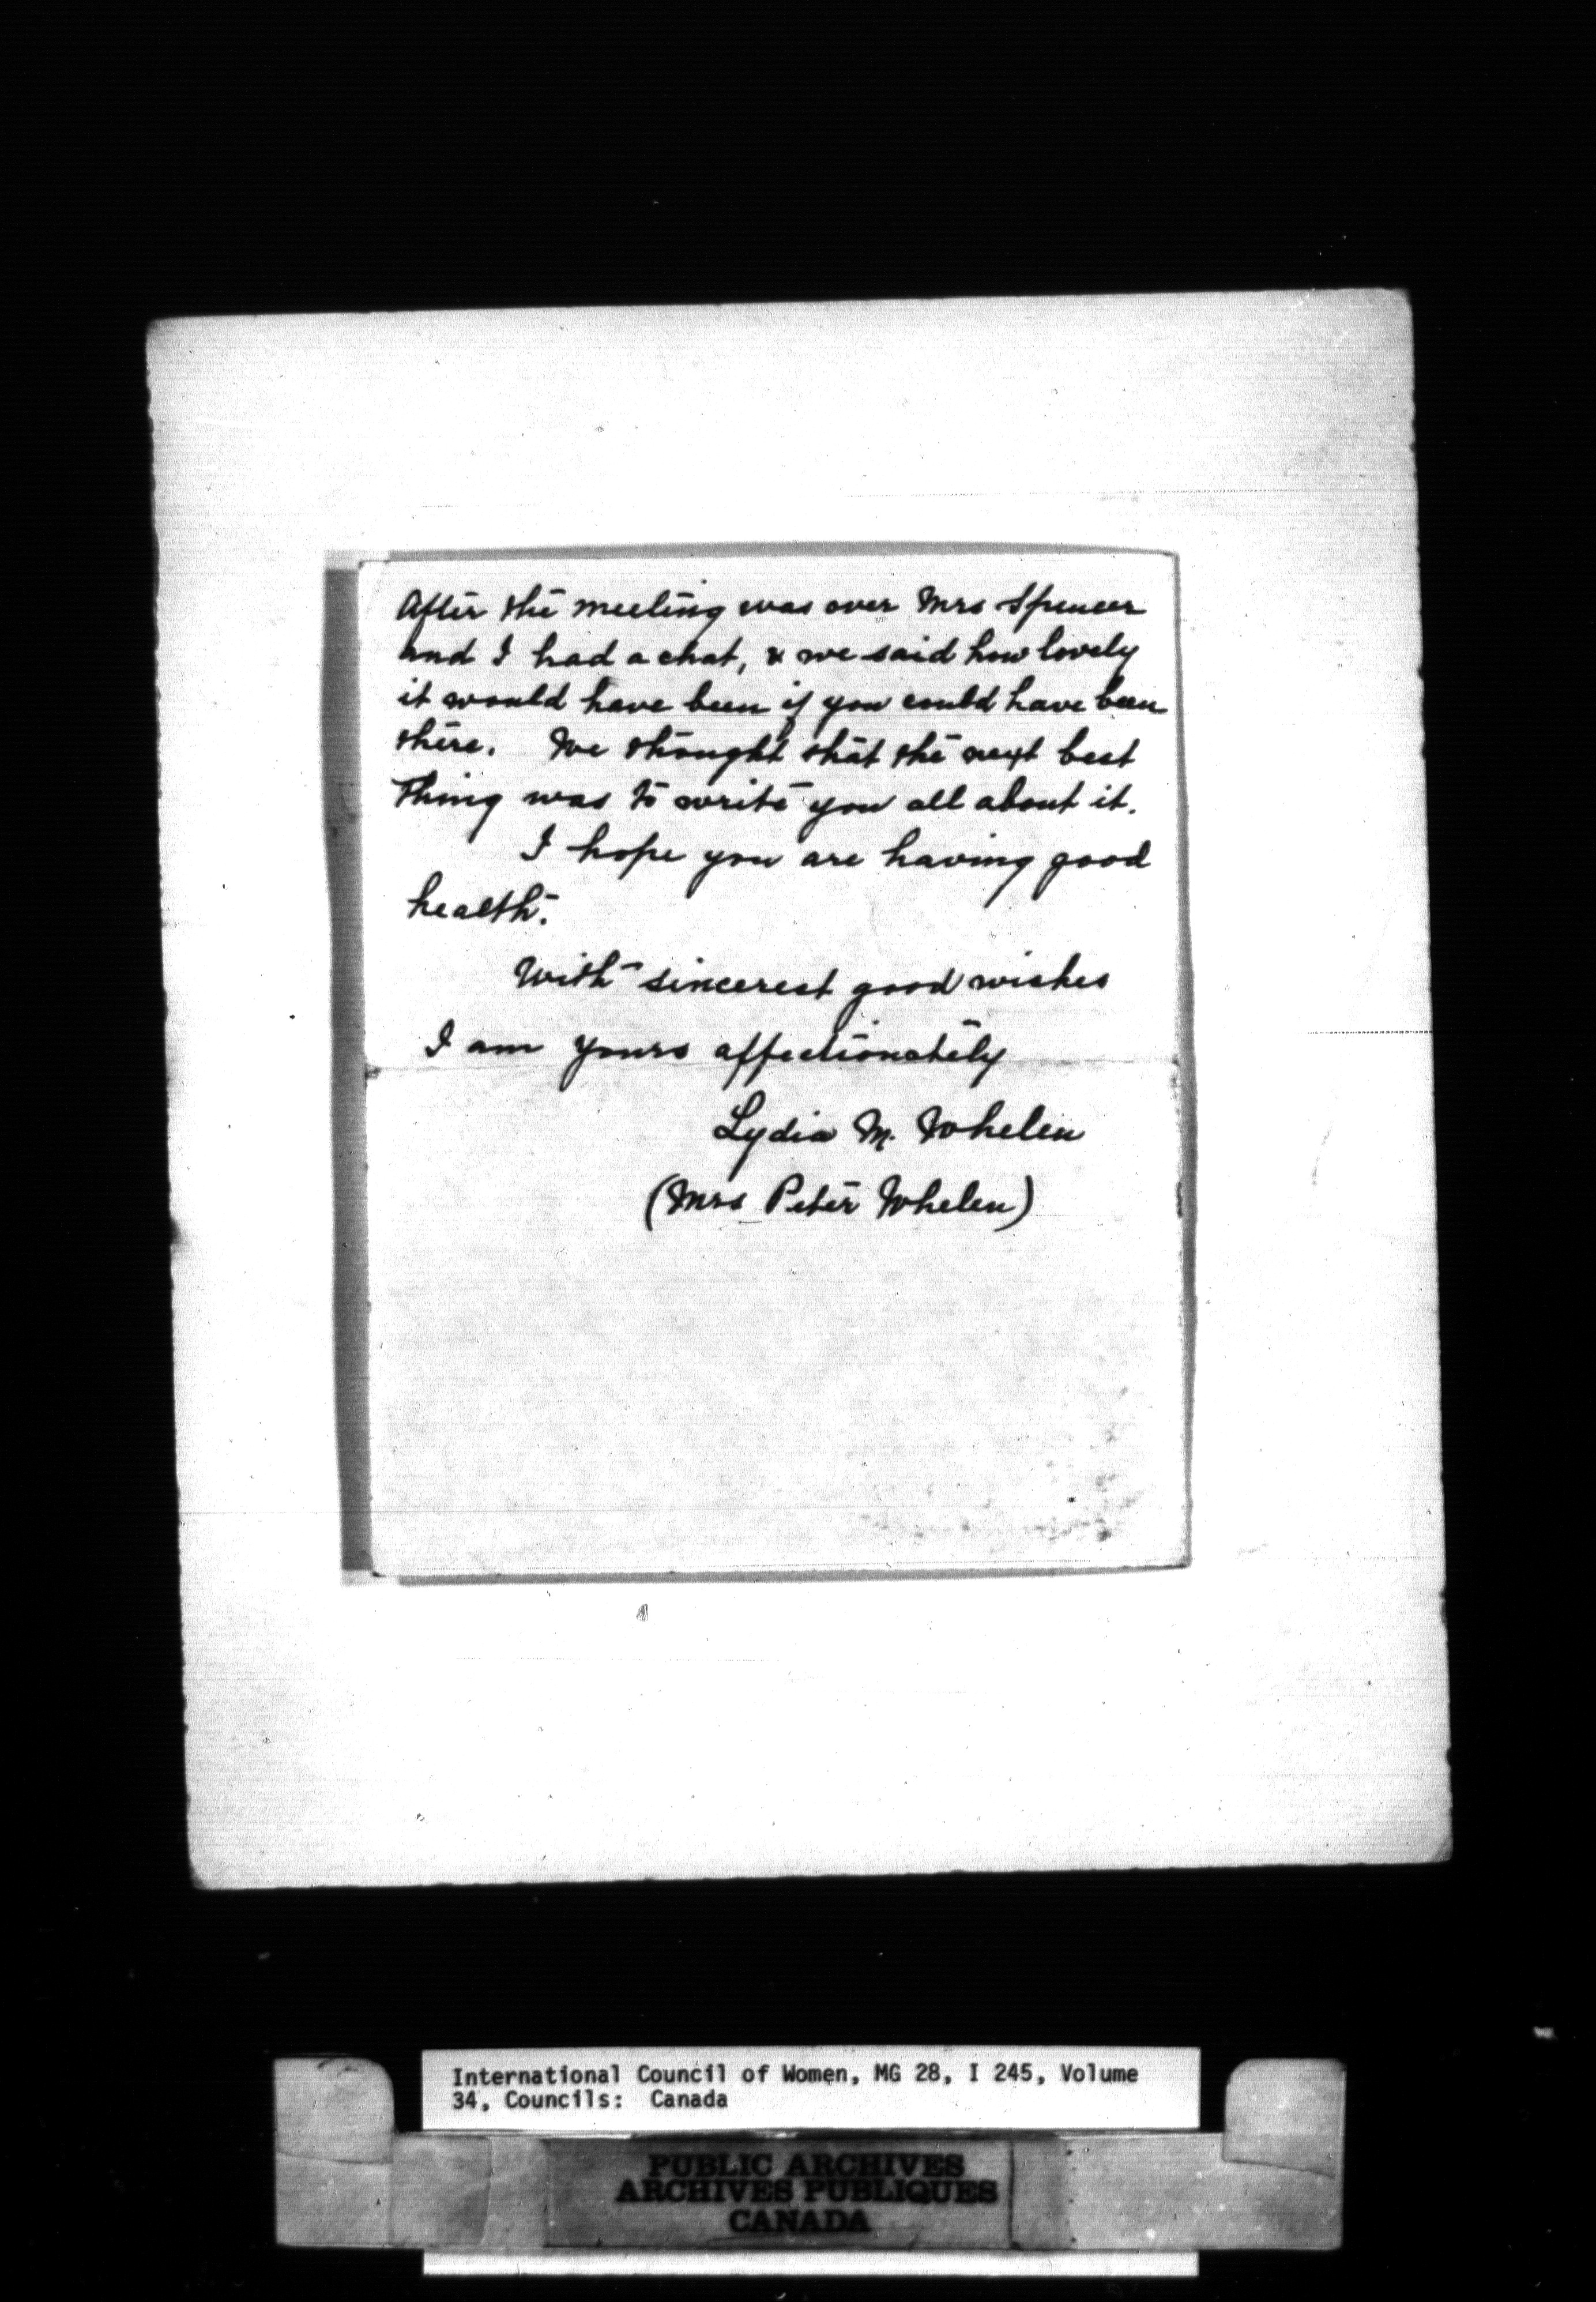 After the meeting was over Mrs Spencer
and I had a chat, & we said how lovely
it would have been if you could have been
there. We thought that the next best
thing was to write you all about it.
I hope you are having good
health.
With sincerest good wishes
I am yours affectionately
Lydia M. Whelen
(Mrs Peter Whelen)
International Council of Women, MG 28, I 245, Volume
34, Councils: Canada
PUBLIC ARCHIVES
ARCHIVES PUBLIQUES
CANADA